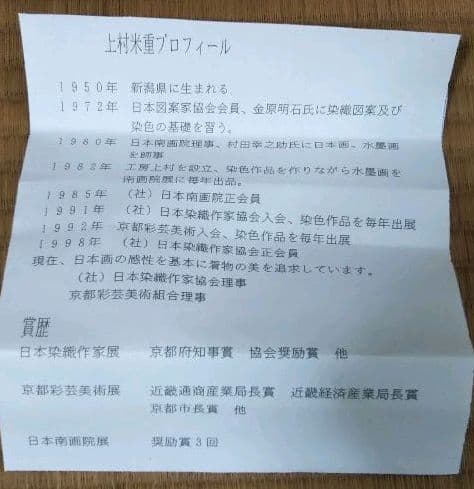 上村米重プロフィール
1950年 新潟県に生まれる
1972年 日本図案家協会会員、金原明石氏に染織図案及び
染色の基礎を習う。
1980年 日本南画院理事、村田幸之助氏に日本画、水墨画
を師事
1982年 工房上村を設立、染色作品を作りながら水墨画を
南画院展に毎年出品。
1985年 (社)日本南画院正会員
1991年 (社)日本染織作家協会入会、染色作品を毎年出展
1992年 京都彩芸美術入会、染色作品を毎年出展
1998年 (社)日本染織作家協会正会員
現在、日本画の感性を基本に着物の美を追求しています。
(社)日本染織作家協会理事
京都彩芸美術組合理事
賞歴
日本染織作家展 京都府知事賞 協会奨励賞 他
京都彩芸美術展 近畿通商産業局長賞 近畿経済産業局長賞
京都市長賞 他
日本南画院展 奨励賞3回